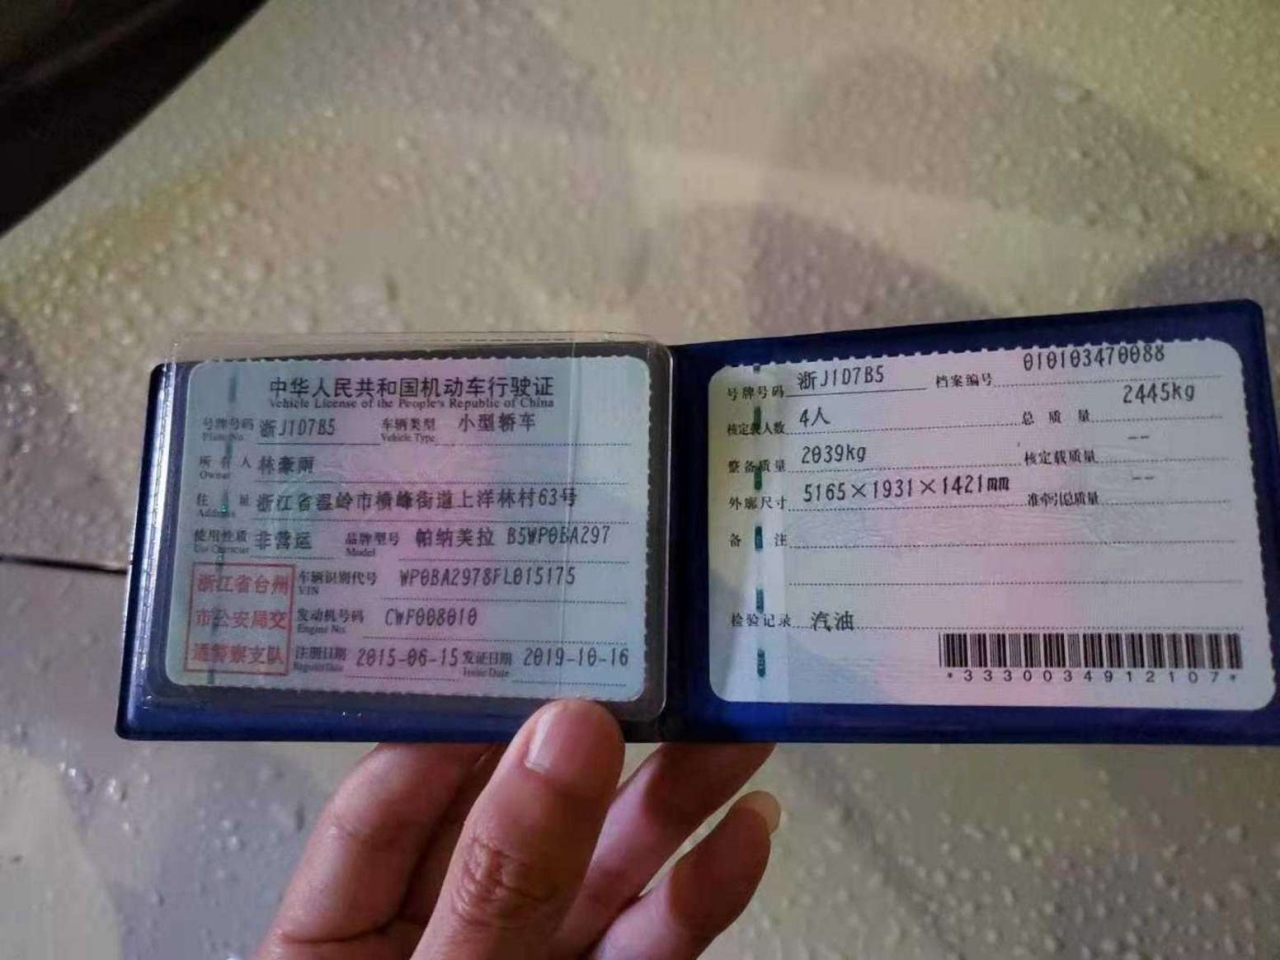 中华人民共和国机动车行驶证
Vehicle License of the People's Republic of China
号牌号码 浙J1D7B5 车辆类型 小型轿车
Plate No. Vehicle Type
所有人 林豪雨
Owner
住址 浙江省温岭市横峰街道上洋林村63号
Address
使用性质 非营运 品牌型号 帕纳美拉 BSWP0BA297
Use Character Model
浙江省台州
市公安局交
通警察支队
车辆识别代号 WP0BA2978FL015175
VIN
发动机号码 CWF008010
Engine No.
注册日期 2015-06-15 发证日期 2019-10-16
Register Date Issue Date
号牌号码 浙J1D7B5 档案编号 010103470088
核定载人数 4人 总质量 2445kg
整备质量 2039kg 核定载质量 --
外廓尺寸 5165×1931×1421mm 准牵引总质量 --
备注
检验记录 汽油
*3330034912107*